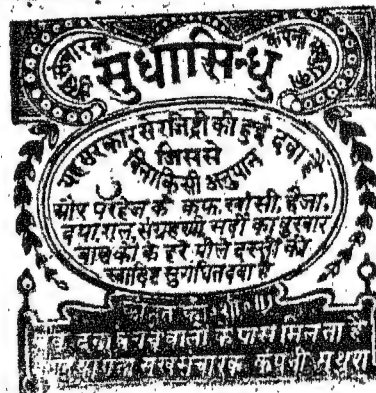 सुखसंचारक कंपनी मथुरा
सुधासिन्धु
यह सरकार से रजिट्री की हुई दवा है
जिससे
बिना किसी अनुपान
और परहेज के कफ, खाँसी, हैजा,
शूल, संग्रहणी, सर्दी का बुखार
बालकों के हरे पीले दस्तों की
स्वादिष्ट सुगंधित दवा है
दवा बेचनेवालों के पास मिलता है
सुखसंचारक कंपनी मथुरा